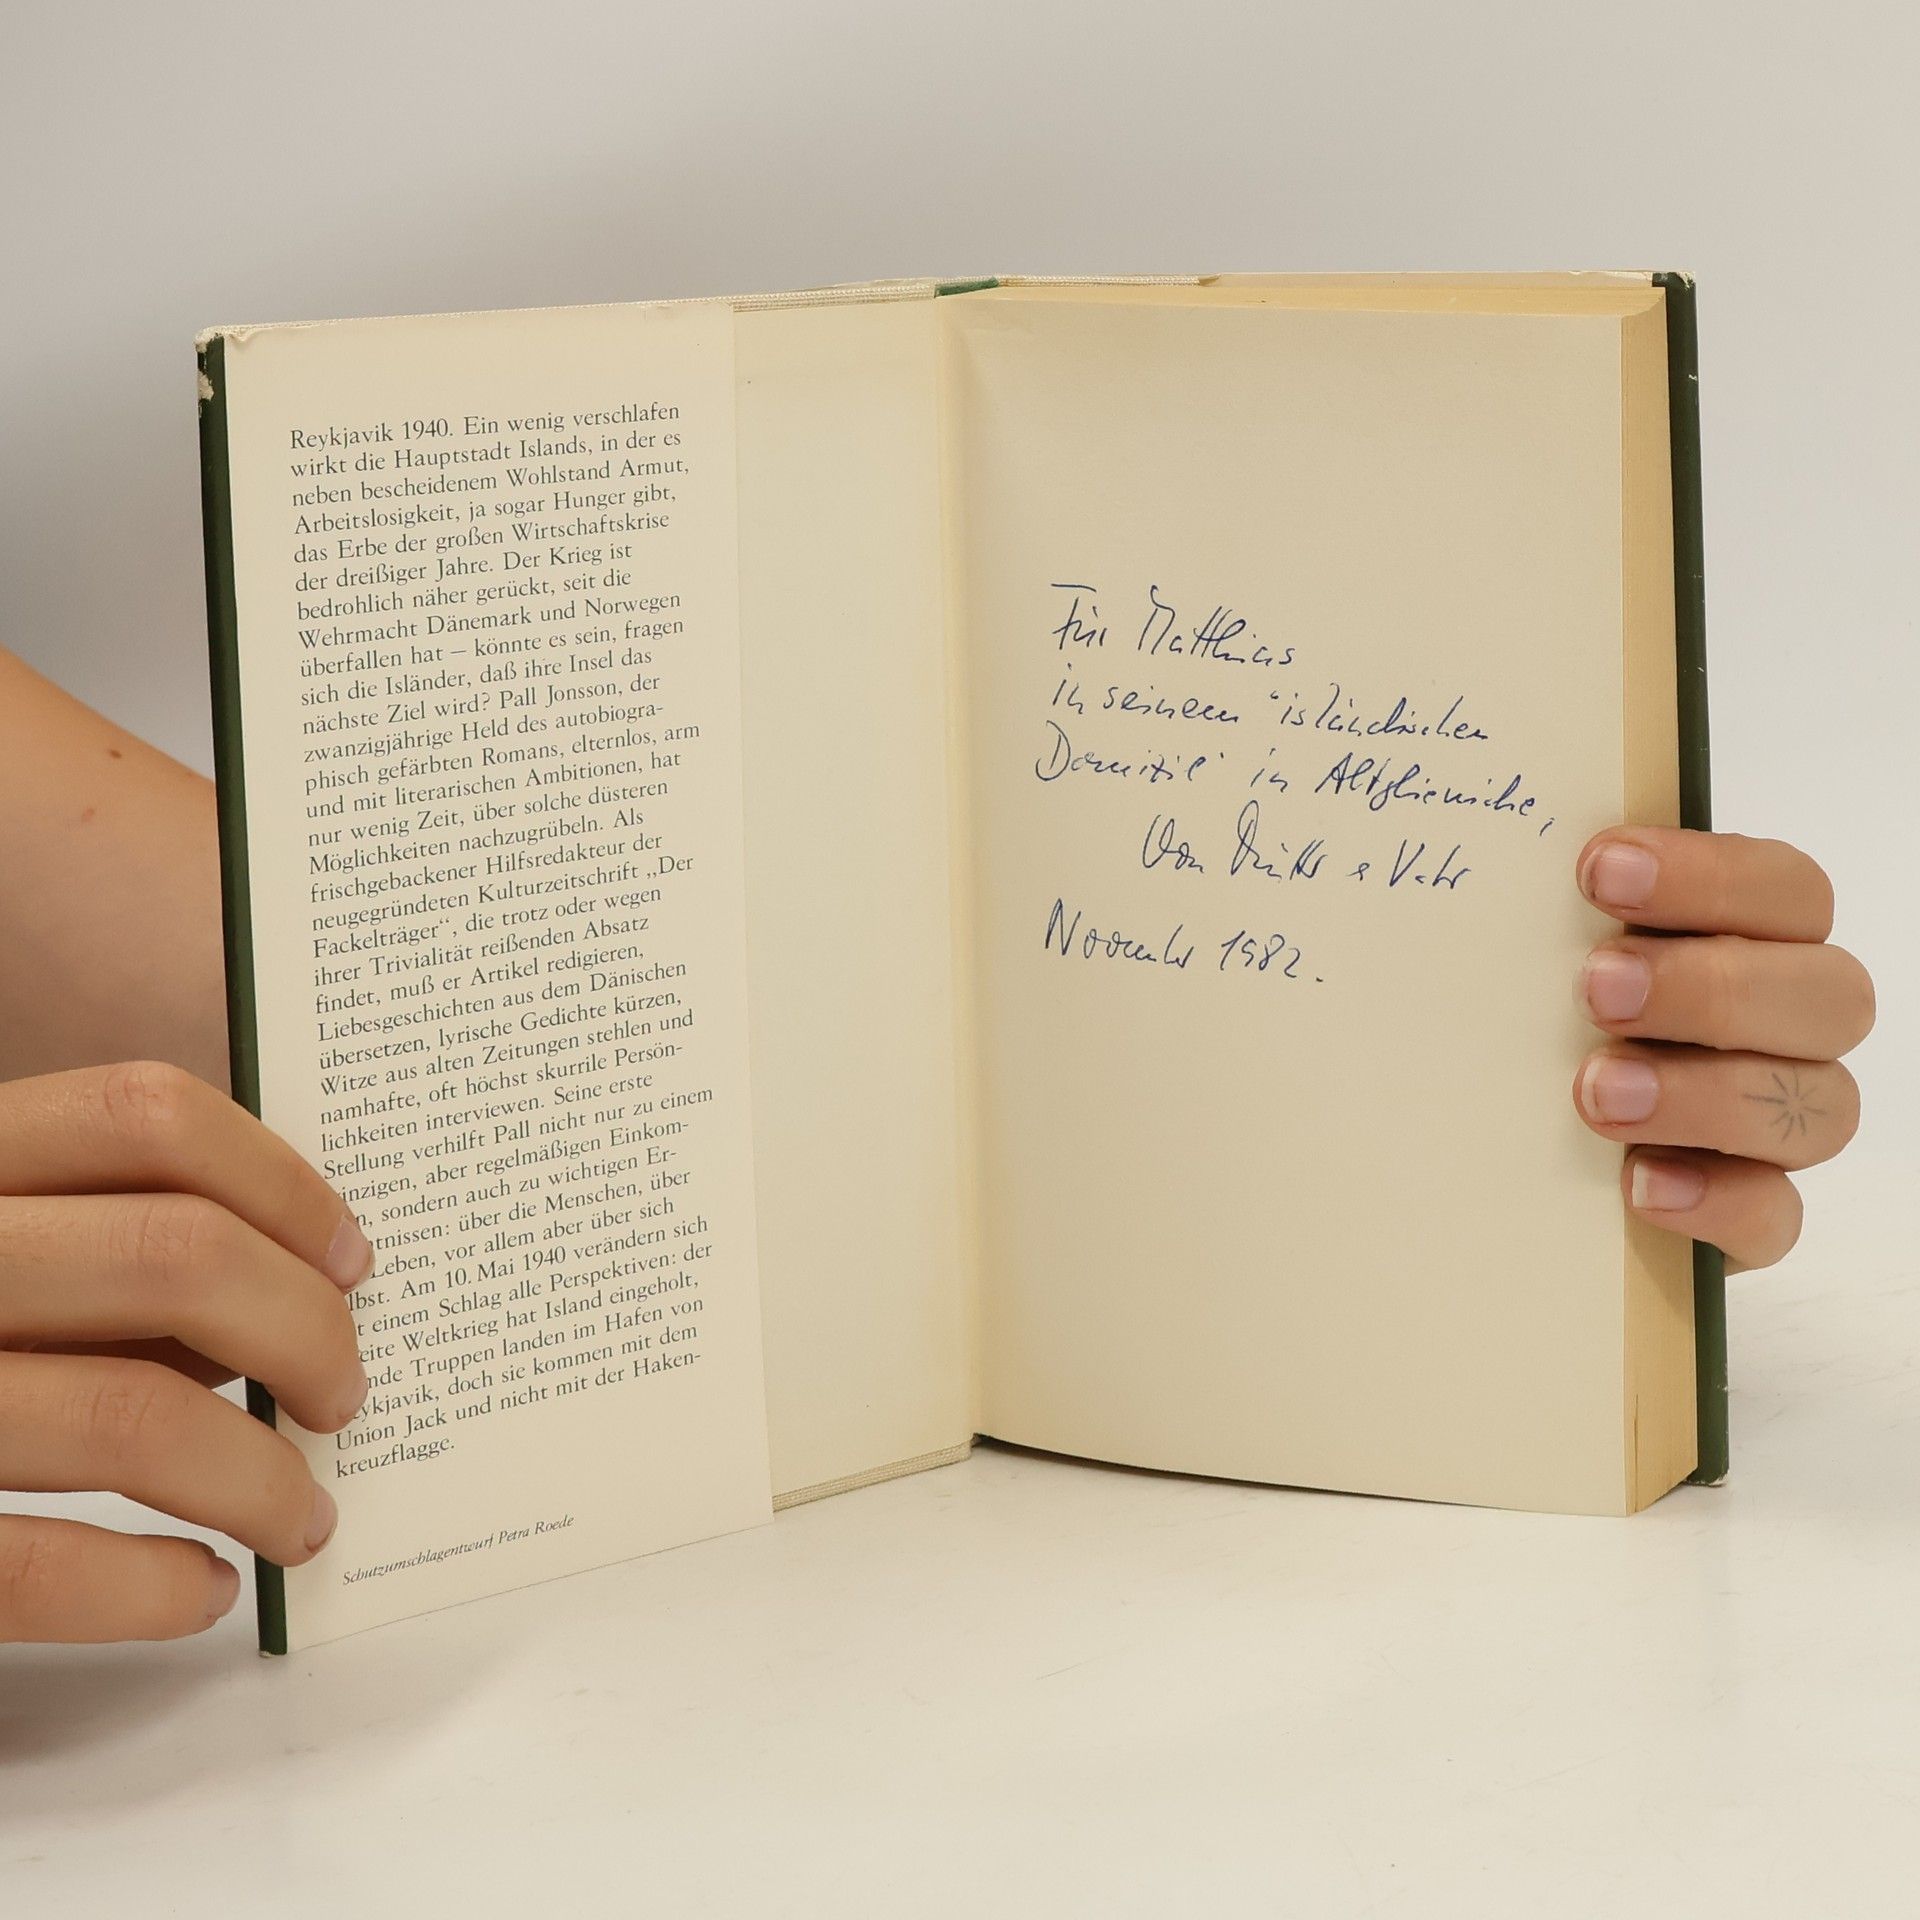 Reykjavik 1940. Ein wenig verschlafen
wirkt die Hauptstadt Islands, in der es
neben bescheidenem Wohlstand Armut,
Arbeitslosigkeit, ja sogar Hunger gibt,
das Erbe der großen Wirtschaftskrise
der dreißiger Jahre. Der Krieg ist
bedrohlich näher gerückt, seit die
Wehrmacht Dänemark und Norwegen
überfallen hat – könnte es sein, fragen
sich die Isländer, daß ihre Insel das
nächste Ziel wird? Pall Jonsson, der
zwanzigjährige Held des autobiogra-
phisch gefärbten Romans, elternlos, arm
und mit literarischen Ambitionen, hat
nur wenig Zeit, über solche düsteren
Möglichkeiten nachzugrübeln. Als
frischgebackener Hilfsredakteur der
neugegründeten Kulturzeitschrift „Der
Fackelträger“, die trotz oder wegen
ihrer Trivialität reißenden Absatz
findet, muß er Artikel redigieren,
Liebesgeschichten aus dem Dänischen
übersetzen, lyrische Gedichte kürzen,
Witze aus alten Zeitungen stehlen und
namhafte, oft höchst skurrile Persön-
lichkeiten interviewen. Seine erste
Stellung verhilft Pall nicht nur zu einem
inzigen, aber regelmäßigen Einkom-
n, sondern auch zu wichtigen Er-
ntnissen: über die Menschen, über
Leben, vor allem aber über sich
lbst. Am 10. Mai 1940 verändern sich
t einem Schlag alle Perspektiven: der
eite Weltkrieg hat Island eingeholt,
mde Truppen landen im Hafen von
eykjavik, doch sie kommen mit dem
Union Jack und nicht mit der Haken-
kreuzflagge.
Schutzumschlagentwurf Petra Roede
Für Matthias
in seinem "isländischen
Domizil" in Altglienicke,
Von Mutter & Vater
November 1982.